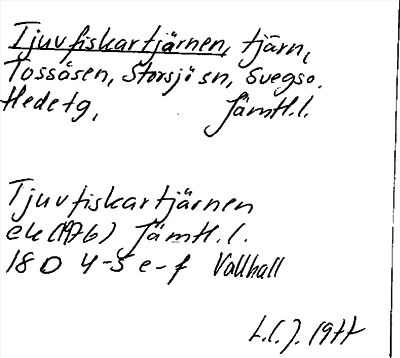 Tjuvfiskartjärnen, tjärn,
Tossåsen, Storsjö sn, Svegs o.
Hede tg, Jämtl.l.
Tjuvfiskartjärnen
ek (1976) Jämtl.l.
18D 4-5 e-f Vallhall
L.C.J. 1977